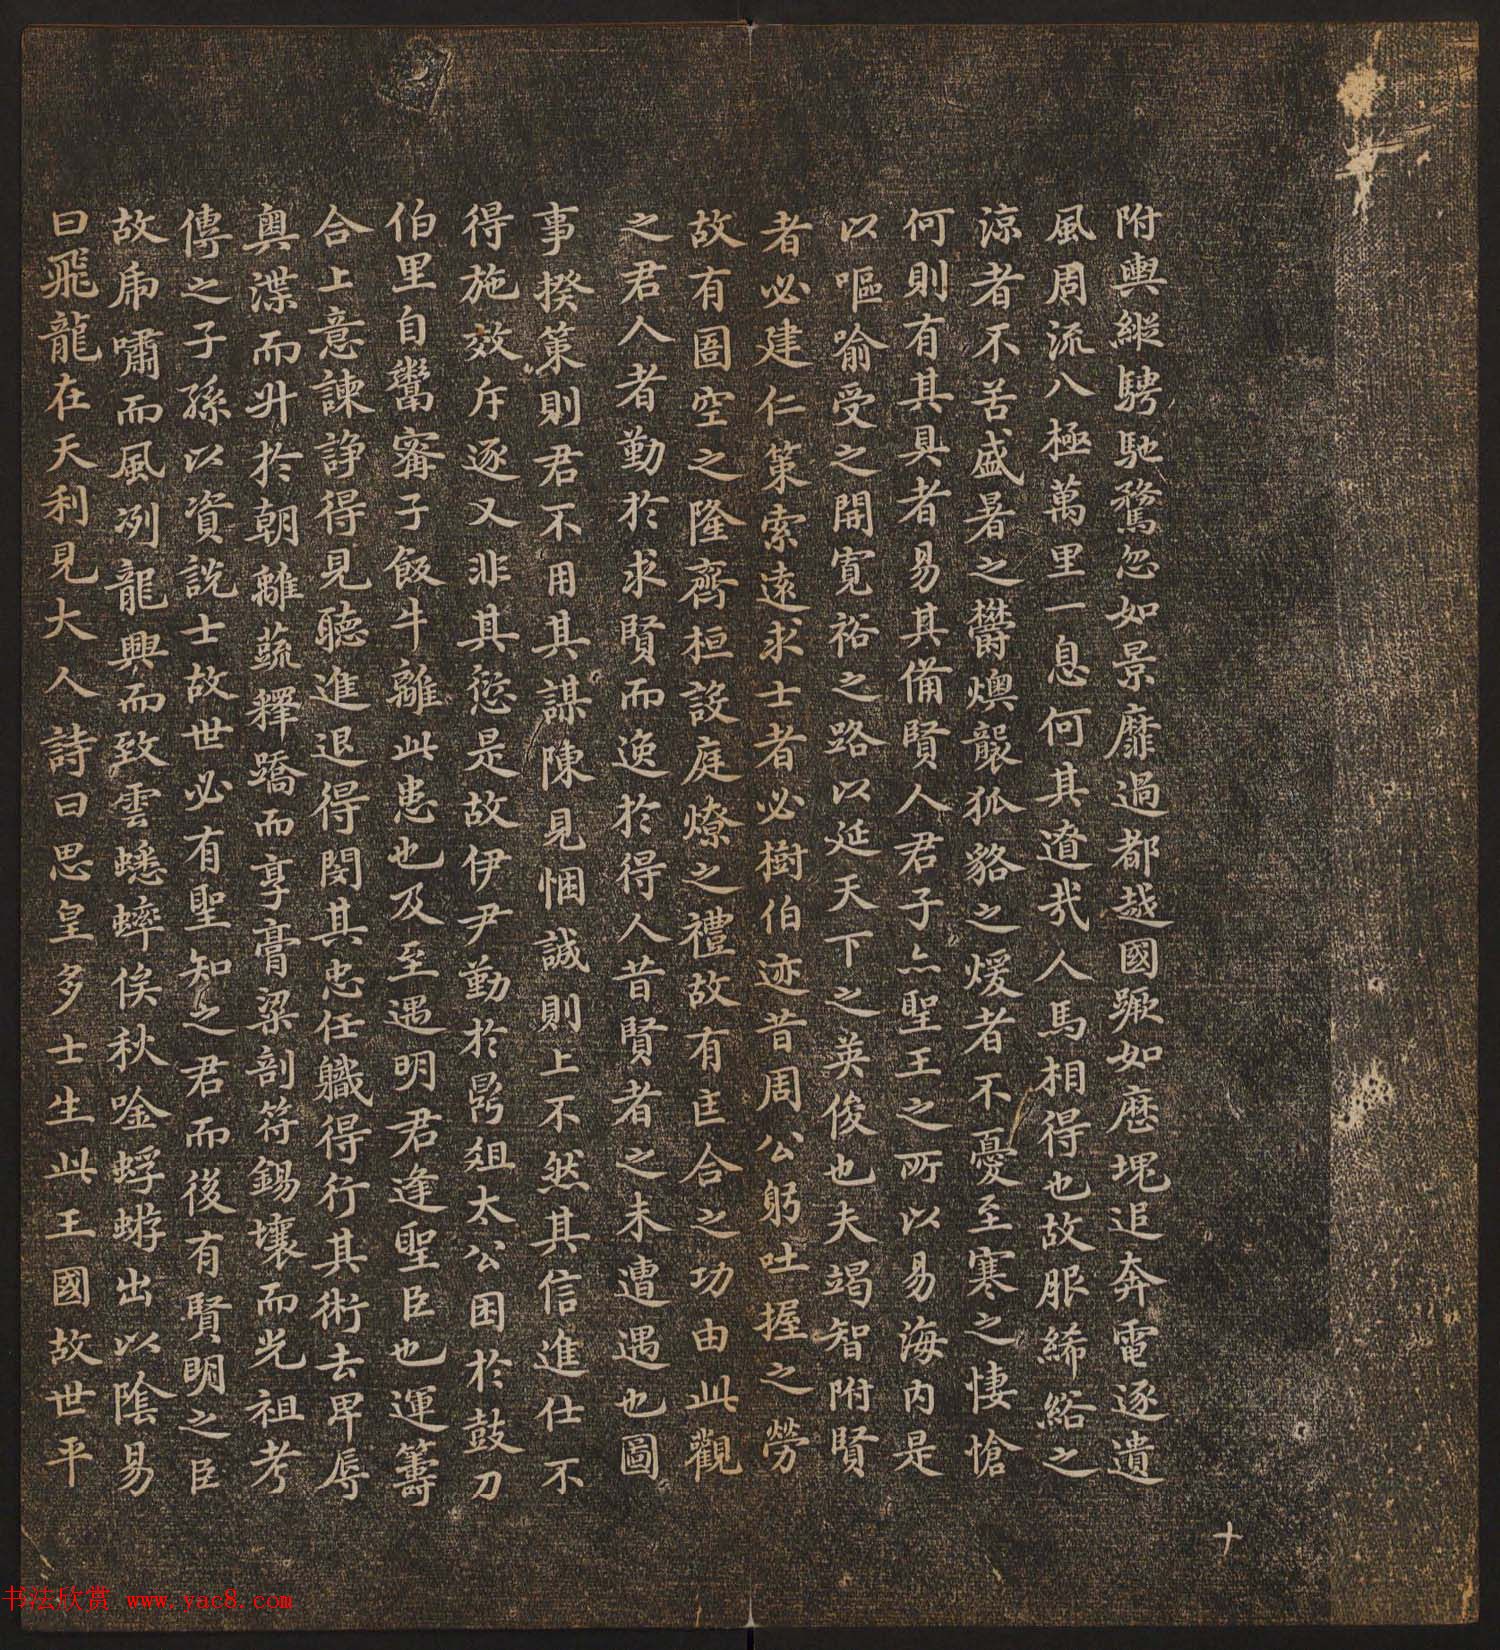 附輿縱騁馳騖忽如景靡過都越國蹶如歷塊追奔電逐遺
風周流八極萬里一息何其遼哉人馬相得也故服絺綌之
涼者不苦盛暑之鬱燠襲狐貉之煖者不憂至寒之悽愴
何則有其具者易其備賢人君子亦聖王之所以易海內是
以嘔喻受之開寬裕之路以延天下之英俊也夫竭智附賢
者必建仁策索遠求士者必樹伯迹昔周公躬吐握之勞
故有圄空之隆齊桓設庭燎之禮故有匡合之功由此觀
之君人者勤於求賢而逸於得人昔賢者之未遭遇也圖
事揆策則君不用其謀陳見悃誠則上不然其信進仕不
得施效斥逐又非其愆是故伊尹勤於鼎俎太公困於鼓刀
伯里自鬻甯子飯牛離此患也及至遇明君逢聖臣也運籌
合上意諫諍得見聽進退得関其忠任職得行其術去卑辱
奧渫而升於朝離蔬釋蹻而享膏粱剖符錫壤而光祖考
傳之子孫以資說士故世必有聖知之君而後有賢明之臣
故虎嘯而風冽龍興而致雲蟋蟀俟秋唫蜉蝣出以陰易
曰飛龍在天利見大人詩曰思皇多士生此王國故世平
十
书法欣赏 www.yac8.com